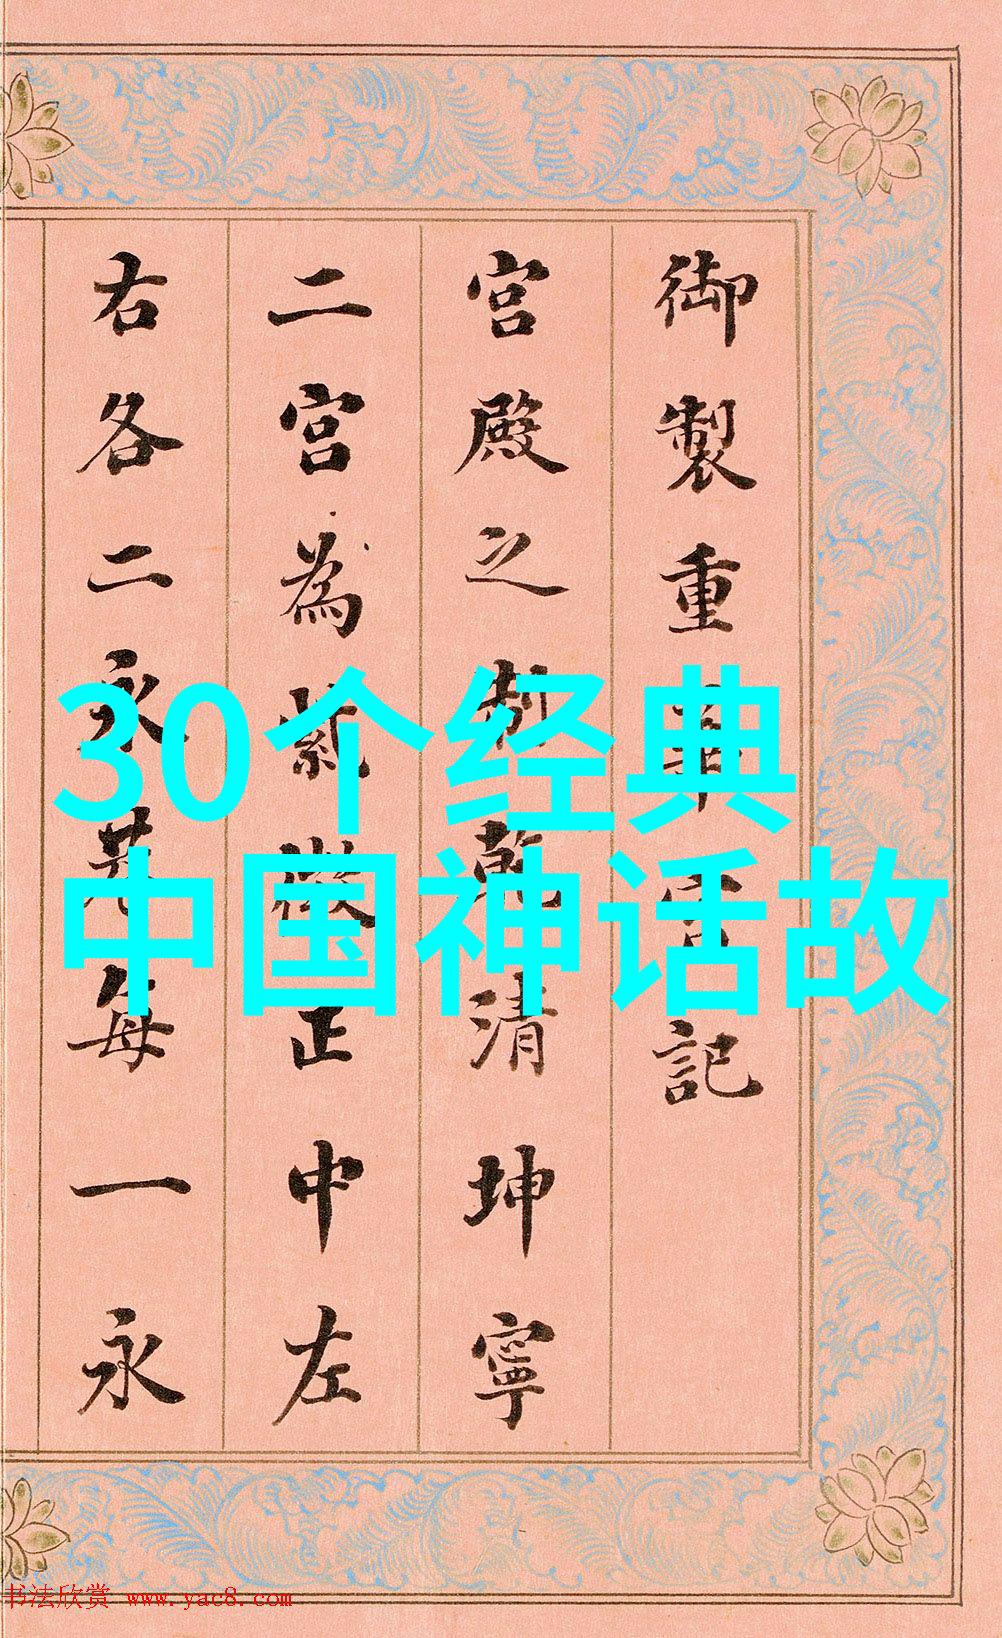 御製重華宮記
宮殿之制乾清坤寧
二宮為紫微正中左
右各二永巷每一永
30个经典
中国神话故
书法欣赏 www.yac8.com